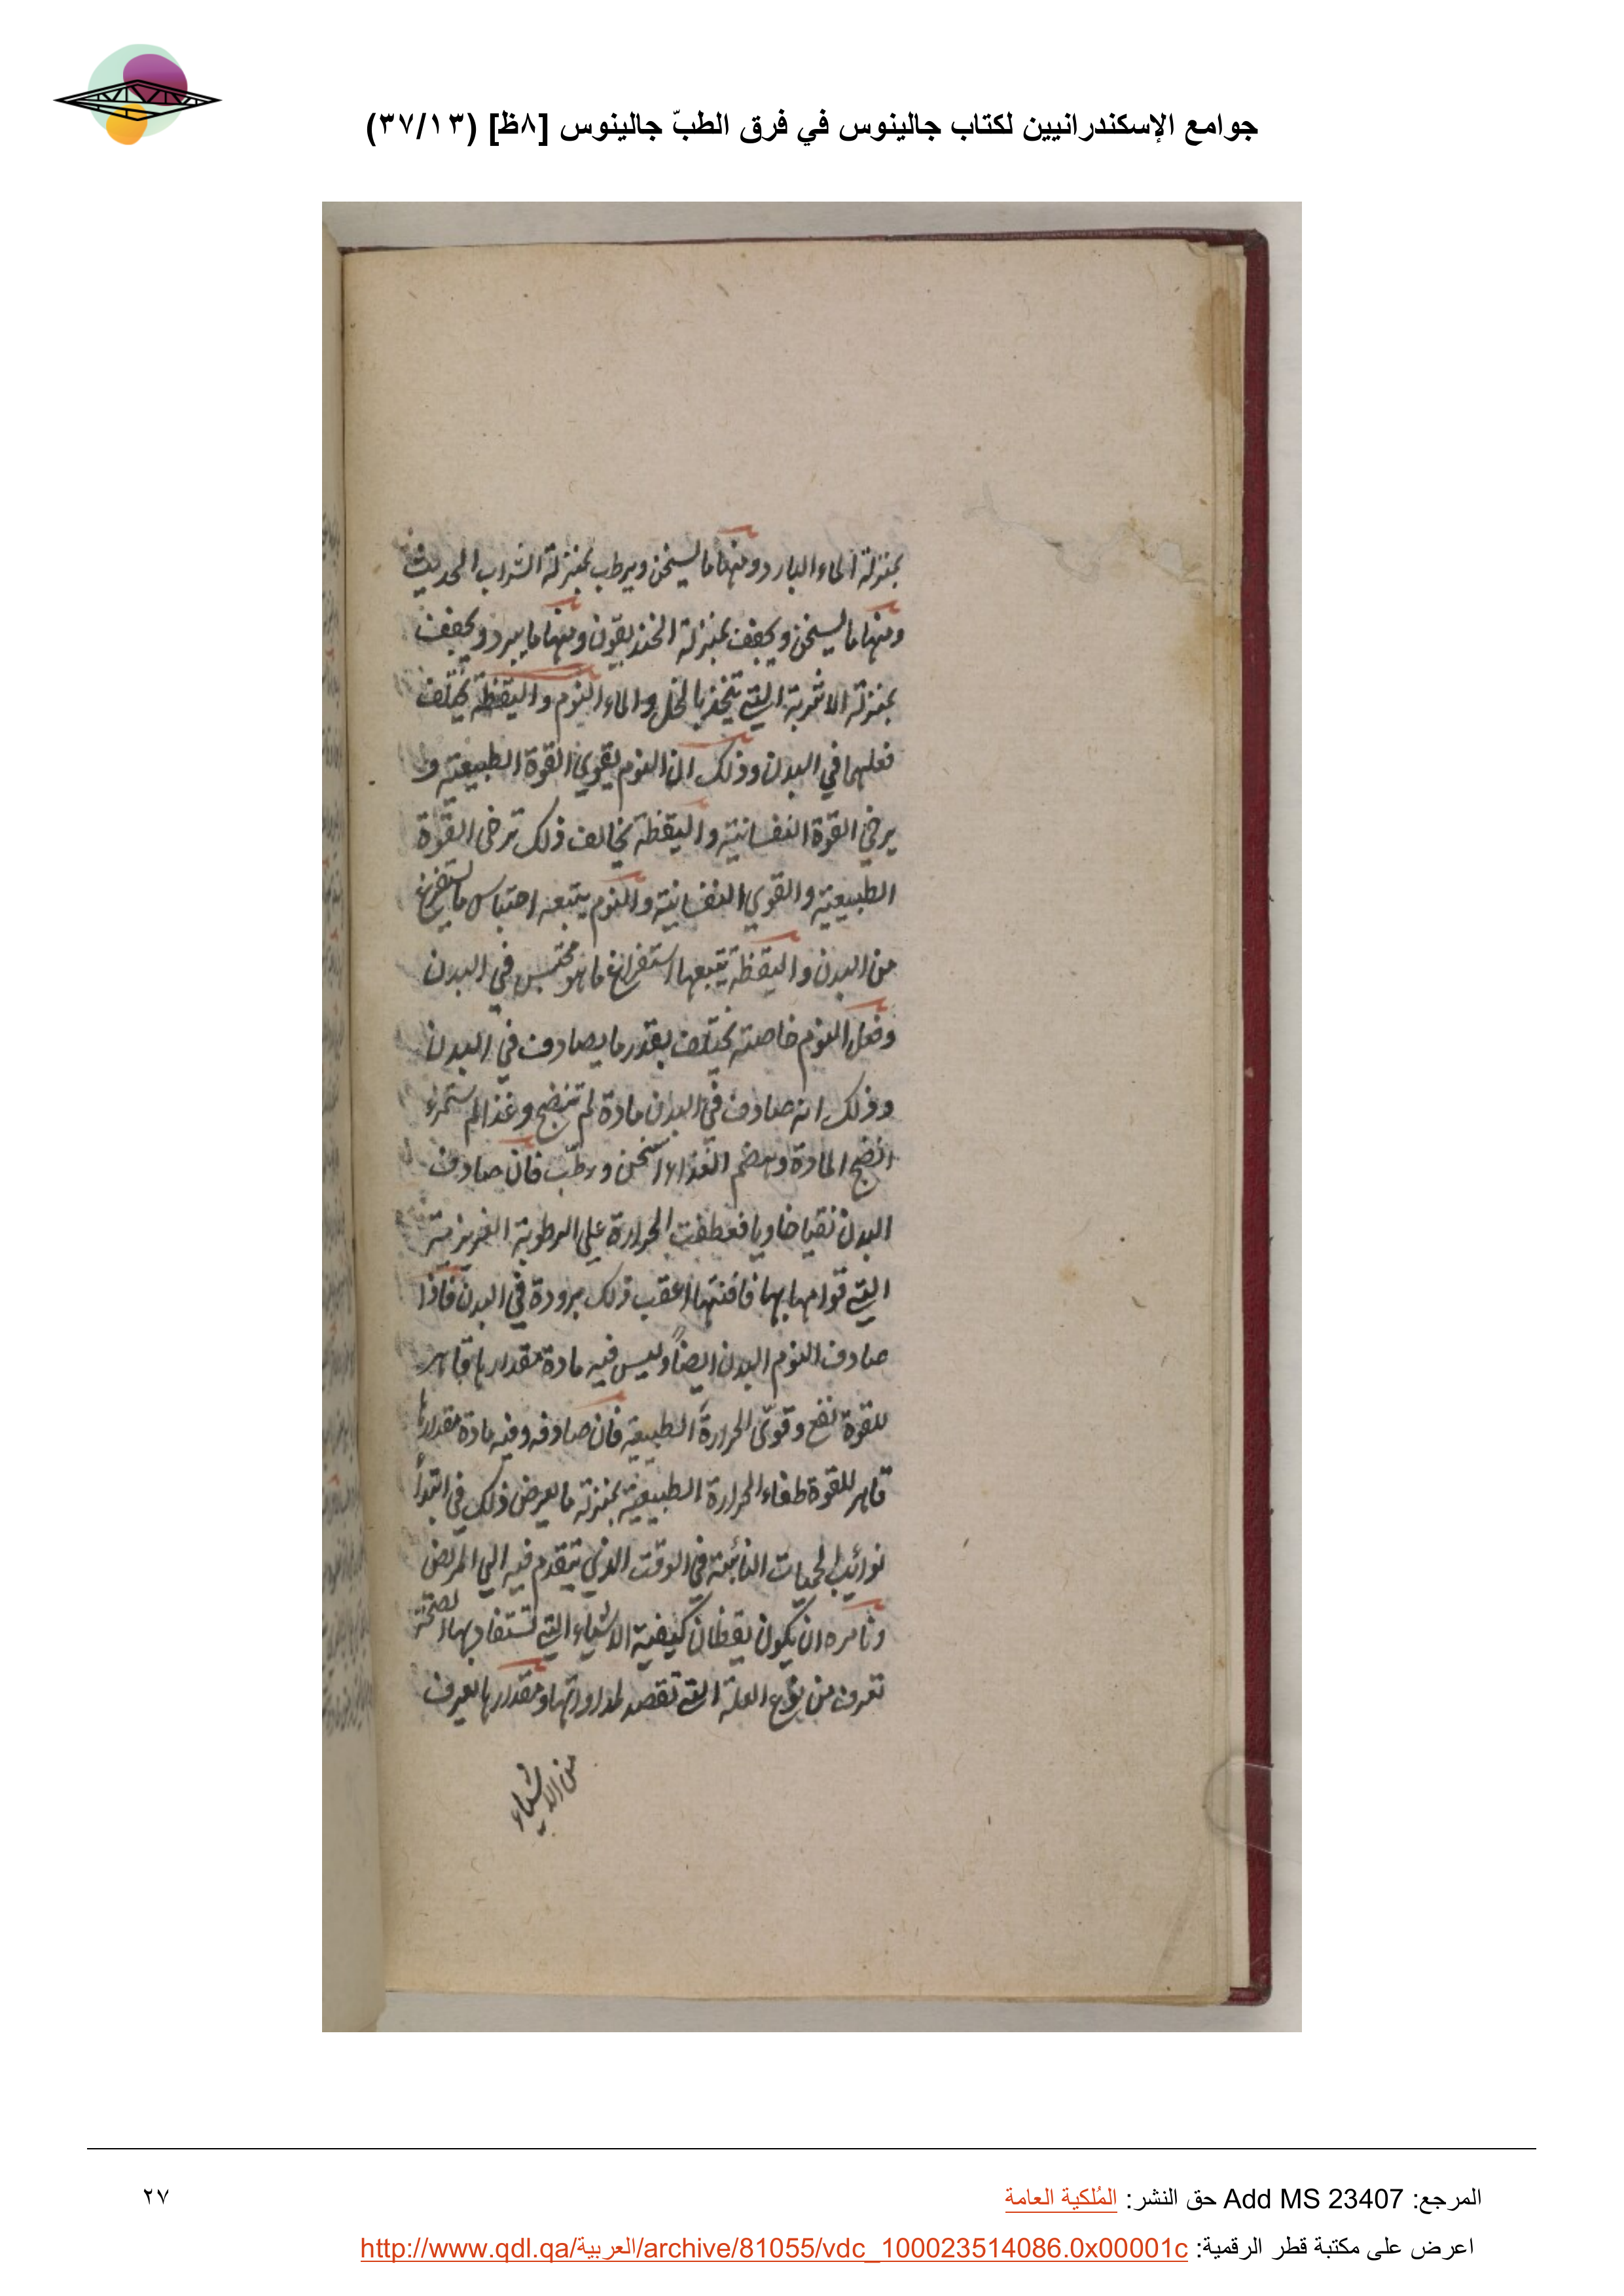 جوامع الإسكندرانيين لكتاب جالينوس في فرق الطبّ جالينوس [٨ظ] (٣٧/١٣)
بمنزلة الماء البارد ومنها ما يسخن ويرطب بمنزلة الشراب الحديث
ومنها ما يسخن ويجفف بمنزلة الخنديقون ومنها ما يبرد ويجفف
بمنزلة الاشربة التي تتخذ بالخل والماء النوم واليقظة يختلف
فعلهما في البدن وذلك ان النوم يقوي القوة الطبيعية و
يرخي القوة النفسانية واليقظة يخالف ذلك ترخى القوة
الطبيعية والقوي النفسانية والنوم يتبعه احتباس ما يستفرغ
من البدن واليقظة تتبعها استفراغ ما هو محتبس في البدن
وفعل النوم خاصته يختلف بقدر ما يصادف في البدن
وذلك انه صادف في البدن مادة لم تنضج وغذا لم يستمرء
انضج المادة وهضم الغذاء اسخن ورطّب فان صادف
البدن نقيا خاويا فعطفت الحرارة علي الرطوبة الغريزية
التي قوامها بها فافنتها اعقب ذلك برودة في البدن فاذا
صادف النوم البدن ايضاً وليس فيه مادة مقدارها قاهر
للقوة نفع وقوّى الحرارة الطبيعية فان صادفه وفيه مادة مقدارها
قاهر للقوة طفاء الحرارة الطبيعية بمنزلة ما يعرض ذلك في ابتدأ
نوائب الحميات النائبة في الوقت الذي يتقدم فيه الي المريض
ونامره ان يكون يقظان كيفية الاشياء التي تستفاد بها الصحة
تعرف من نوع العلة التي تقصد لمداواتها ومقدارها يعرف
من الاشياء
المرجع: Add MS 23407 حق النشر: المُلكية العامة
٢٧
اعرض على مكتبة قطر الرقمية: http://www.qdl.qa/العربية/archive/81055/vdc_100023514086.0x00001c